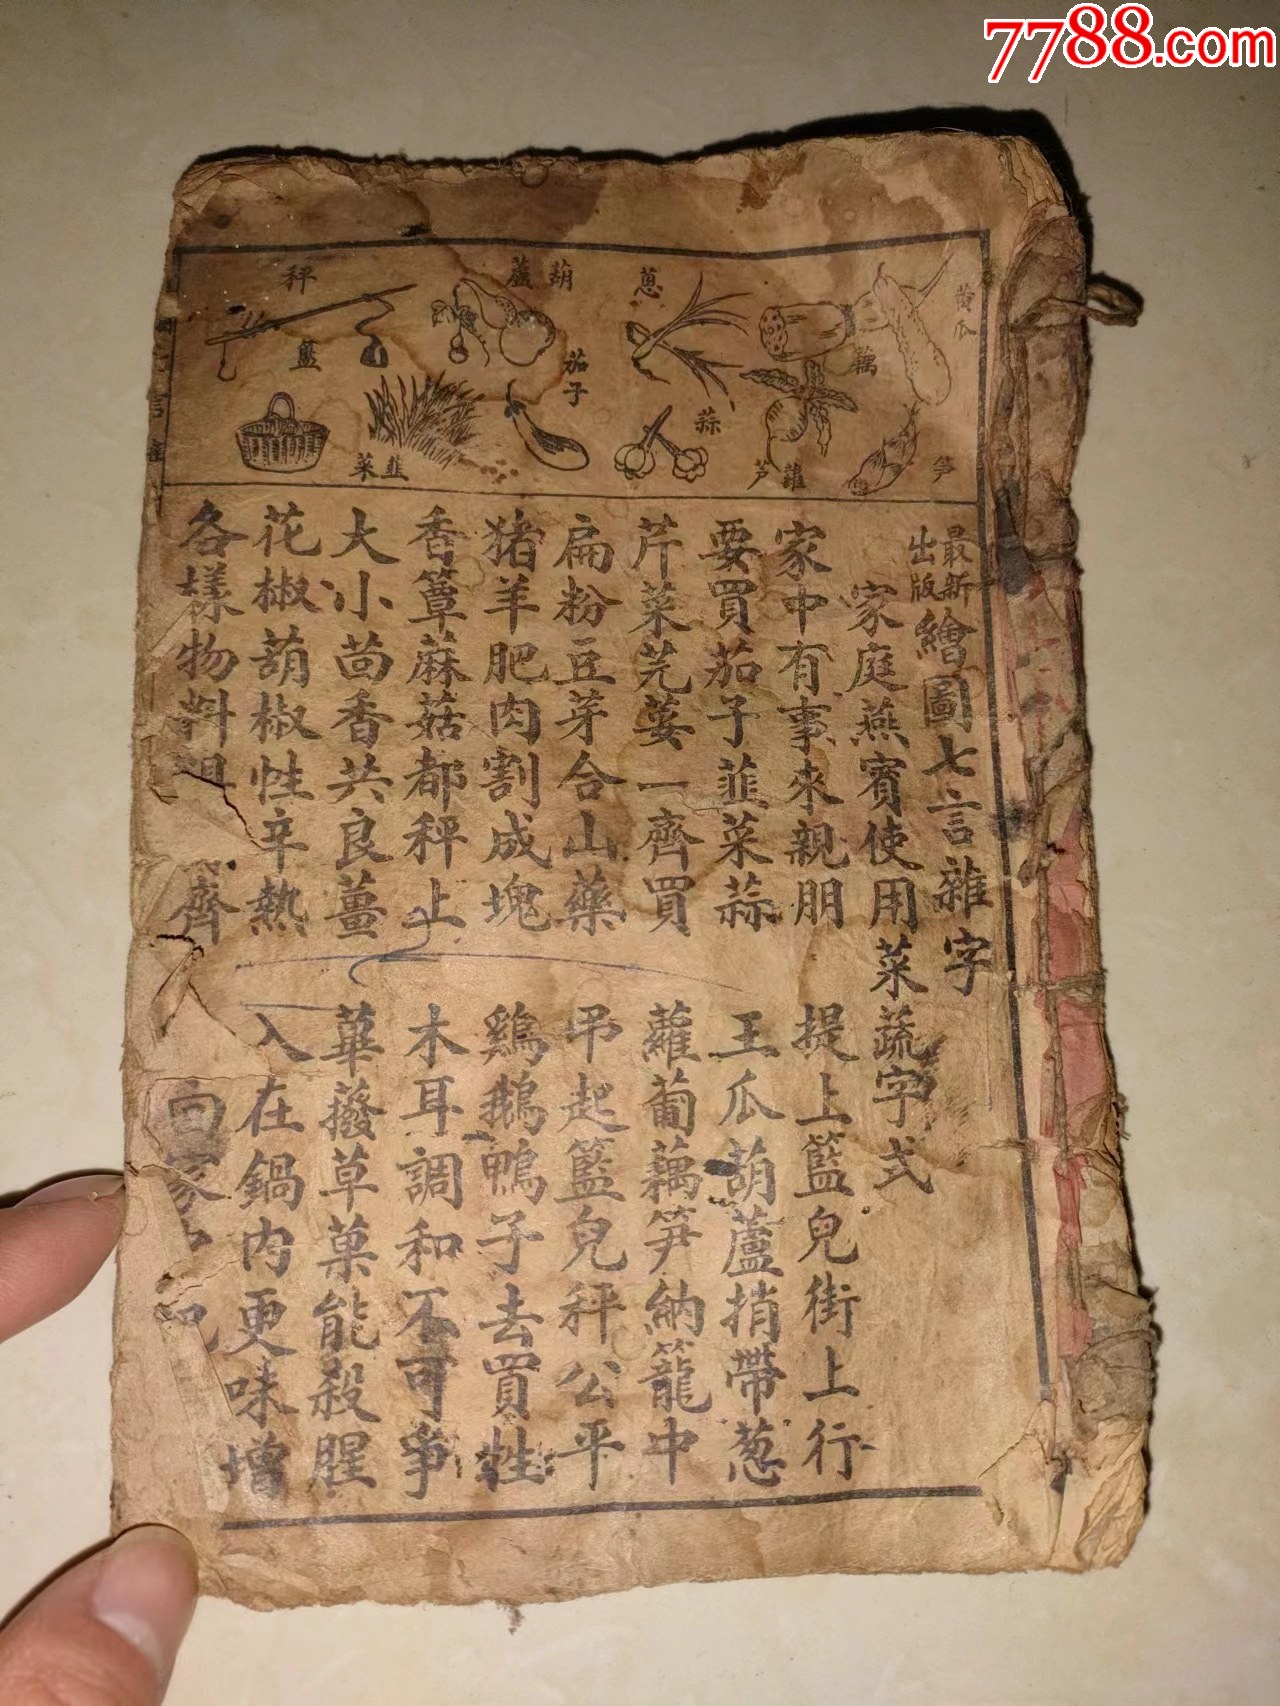 7788.com
黃瓜
藕
笋
蘿芦
蔥
蒜
葫蘆
茄子
韭菜
秤
籃
言雜
最新出版繪圖七言雜字
家庭燕賓使用菜蔬字式
家中有事來親朋 提上籃兒街上行
要買茄子韮菜蒜 王瓜葫蘆捎帶葱
芹菜芫荽一齊買 蘿蔔藕笋納籠中
扁粉豆芽合山藥 吊起籃兒秤公平
猪羊肥肉割成塊 鷄鵝鴨子去買牲
香蕈蔴菇都秤上 木耳調和不可爭
大小茴香共良薑 蓽撥草菓能殺腥
花椒葫椒性辛熱 入在鍋内更味增
各樣物料 齊 家